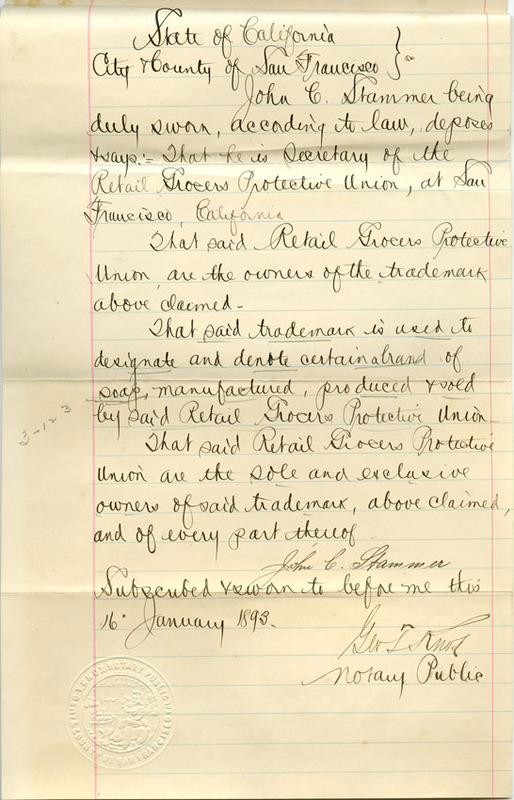 State of California
City & County of San Francisco } ss
John C. Stammer being
duly sworn, according to law, deposes
& says:- That he is Secretary of the
Retail Grocers Protective Union, at San
Francisco, California
That said Retail Grocers Protective
Union, are the owners of the trademark
above claimed-
That said trademark is used to
designate and denote certain brand of
soap, manufactured, produced & sold
by said Retail Grocers Protective Union
3-123
That said Retail Grocers Protective
Union are the sole and exclusive
owners of said trademark, above claimed,
and of every part thereof
John C. Stammer
Subscribed & sworn to before me this
16 January 1893.
Geo T Knox
Notary Public
NOTARY PUBLIC
COUNTY OF SAN FRANCISCO